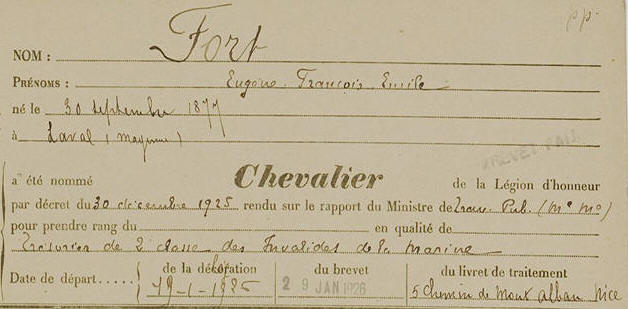 pp.
NOM : Fort
PRÉNOMS : Eugène François Emile
né le 30 septembre 1877
à Laval (Mayenne)
BREVET PAYÉ
a été nommé Chevalier de la Légion d'honneur
par décret du 30 décembre 1925 rendu sur le rapport du Ministre de Trav. Pub. (Me Mde)
pour prendre rang du en qualité de
Trésorier de 2 classe des Invalides de la Marine
Date de départ de la décoration du brevet du livret de traitement
19-1-1925 29 JAN 1926 5 Chemin de Mont Alban Nice